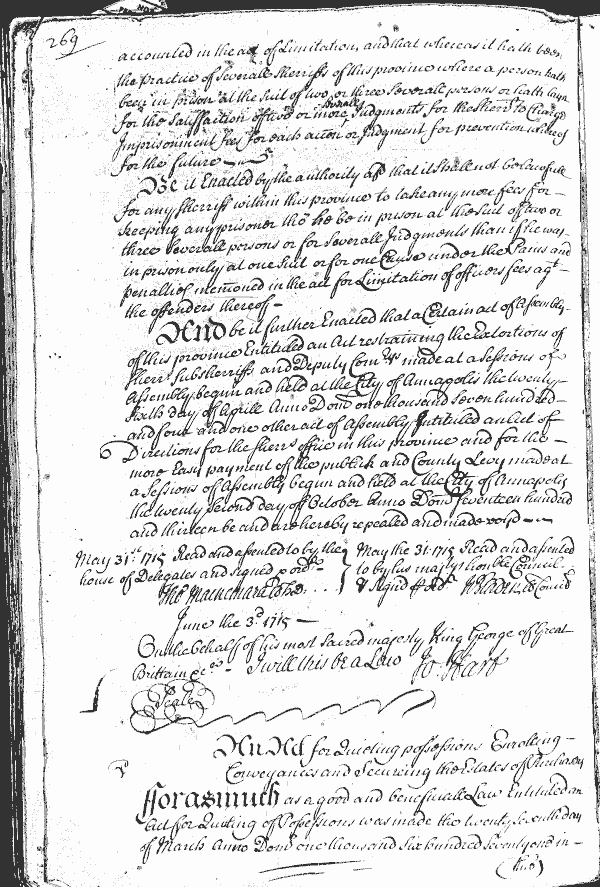 269
accounted in the act of Limitation, and that whereas it hath been
the practice of severall Sherriffs of this province where a person hath
been in prison at the suit of two or three severall persons or hath layn
for the Satisfaction of two or more severall Judgments for the Sherr to Charge
Imprisonment Fees for each accon or Judgment for prevention whereof
for the future
Be it Enacted by the authority afd that it shall not be lawfull
for any Sherriff within this province to take any more fees for
keeping any prisoner tho he be in prison at the suit of two or
three Severall persons or for severall Judgments than if he was
in prison only at one suit or for one Cause under the Pains and
penalties menconed in the act for Limitation of officers fees agt
the offenders thereof
And be it further Enacted that a Certain act of Assembly
of this province Entituled an Act restraining the Extortions of
Sherr Subsherriffs and Deputy Comrs made at a Sessions of
Assembly begun and held at the City of Annapolis the twenty
Sixth day of Aprill Anno Dom one thousand seven hundred
and four and one other act of Assembly Intituled an Act of
Directions for the Sherrs office in this province and for the
more Easy payment of the publick and County Levy made at
a Sessions of Assembly begun and held at the City of Annapolis
the twenty second day of October Anno Dom Seventeen hundred
and thirteen be and are hereby repealed and made voyd
May 31st 1715 Read and assented to by the
house of Delegates and Signed p ordr
Macnemara
May the 31 1715 Read and assented
to by his majtys honble Council
& Signd
June the 3d 1715
On the behalf of his most Sacred majesty King George of Great
Brittain &c I will this be a Law Jo Hart
Seale
An Act for Quieting possessions Enrolling
Conveyances and Securing the Estates of Purchasers
Forasmuch as a good and beneficiall Law Entituled an
Act for Quieting of Possessions was made the twenty seventh day
of March Anno Dom one thousand six hundred seventy and in
(tho)